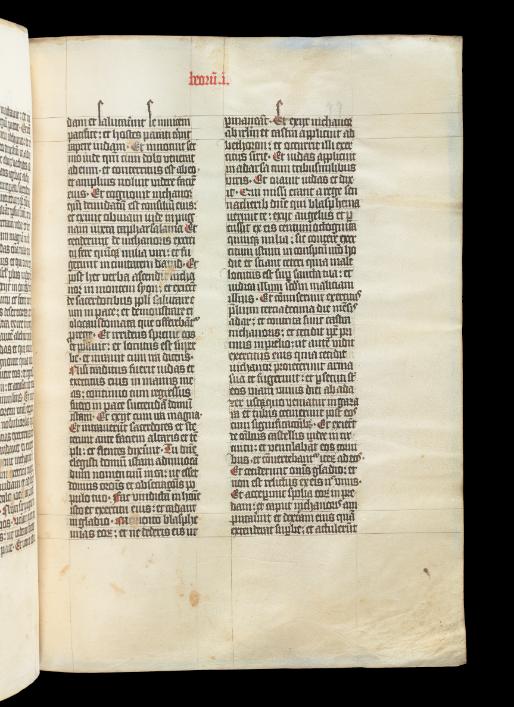 beorū.i.
dam et salutauerūt se inuicem
pacifice: et hostes parati erāt
rapere iudam. Et innotuit ser
mo iude qm̄ cum dolo venerat
ad eum. et conterritus est ab eo.
et amplius noluit videre faciē
eius. Et cognouit nichanor
qm̄ denudatū est consiliū eius:
et exiuit obuiam iude in pug
nam iuxta capharsalama. Et
ceciderunt de nichanoris exerci
tu fere quīq; milia viri: et fu
gerunt in ciuitatem dauid. Et
post hec verba ascendit nicha
nor in montem syon: et exierūt
de sacerdotibus ppli salutare e
um in pace: et demonstrare ei
olocaustomata que offerebāt
p rege. Et irridens spreuit eos
et polluit: et locutus est super
be: et iurauit cum ira dicens.
Nisi traditus fuerit iudas et
exercitus eius in manus me
as: continuo cum regressus
fuero in pace succendā domū
istam. Et exiit cum ira magna.
Et intrauerūt sacerdotes et ste
terunt ante faciem altaris et te
pli: et flentes dixerūt. Tu dn̄e
elegisti domū istam ad inuocā
dum nomen tuū in ea: ut esset
domus oronis et obsecronis po
pulo tuo. Fac vindictā in homīe
isto et exercitu eius: et cadant
in gladio. Memento blasphe
mias eoꝝ: et ne dederis eis ut
pmaneant. Et exiit nichanor
ab irlm̄ et castra applicuit ad
bethoron: et occurrit illi exer
citus sirie. Et iudas applicuit
in adarsa cum tribus milibus
viris. Et orauit iudas et dix
it. Qui missi erant a rege sen
nacherib dn̄e quia blasphema
uerunt te: exiit angelus et p
cussit ex eis centum octoginta
quinq; milia: sic contere exer
citum istum in conspectu nr̄o ho
die et sciant ceteri quia male
locutus est sup sancta tua: et
iudica illum scdm̄ maliciam
illius. Et cōmiserunt exercitus
plium terciadecima die mēsis
adar: et contrita sunt castra
nichanoris: et cecidit ipē pri
mus in prelio. ut autē vidit
exercitus eius quia cecidit
nichanor proiecerunt arma
sua et fugerunt: et psecuti sūt
eos viam unius diei ab ada
zer usquequo veniatur in gaza
ra et tubis cecinerunt post eos
cum significationibꝫ. Et exierūt
de oībus castellis iudee in cir
cuitu: et ventilabāt eos corni
bus. et conuertebantur iterū ad eos.
Et ceciderunt omēs gladio: et
non est relictus ex eis nec unus.
Et acceperunt spolia eoꝝ in pre
dam: et caput nichanoris am
putauerūt et dextram eius quā
extenderat supbe: et attulerūt